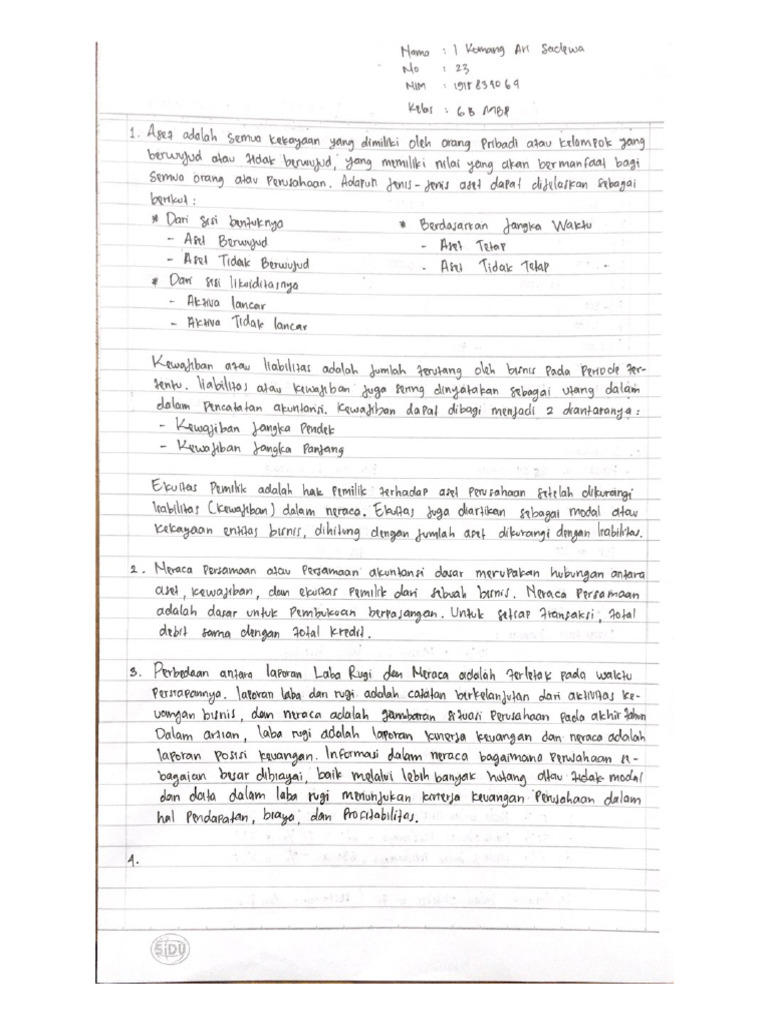 Nama : I Komang Ari Sadewa
No : 23
NIM : 1915834069
Kelas : 6B MBP
1. Aset adalah semua kekayaan yang dimiliki oleh orang pribadi atau kelompok yang
berwujud atau tidak berwujud, yang memiliki nilai yang akan bermanfaat bagi
semua orang atau perusahaan. Adapun jenis-jenis aset dapat dijelaskan sebagai
berikut :
* Dari sisi bentuknya
- Aset Berwujud
- Aset Tidak Berwujud
* Dari sisi likuiditasnya
- Aktiva lancar
- Aktiva Tidak lancar
* Berdasarkan Jangka Waktu
- Aset Tetap
- Aset Tidak Tetap
Kewajiban atau liabilitas adalah jumlah terutang oleh bisnis pada periode ter-
tentu. liabilitas atau kewajiban juga sering dinyatakan sebagai utang dalam
dalam pencatatan akuntansi. Kewajiban dapat dibagi menjadi 2 diantaranya :
- Kewajiban Jangka Pendek
- Kewajiban Jangka Panjang
Ekuitas Pemilik adalah hak pemilik terhadap aset perusahaan setelah dikurangi
liabilitas (kewajiban) dalam neraca. Ekuitas juga diartikan sebagai modal atau
kekayaan entitas bisnis, dihitung dengan jumlah aset dikurangi dengan liabilitas.
2. Neraca Persamaan atau Persamaan akuntansi dasar merupakan hubungan antara
aset, kewajiban, dan ekuitas pemilik dari sebuah bisnis. Neraca Persamaan
adalah dasar untuk pembukuan berpasangan. Untuk setiap transaksi, total
debit sama dengan total kredit.
3. Perbedaan antara laporan Laba Rugi dan Neraca adalah terletak pada waktu
persiapannya. laporan laba dan rugi adalah catatan berkelanjutan dari aktivitas ke-
uangan bisnis, dan neraca adalah gambaran situasi perusahaan pada akhir tahun
Dalam artian, laba rugi adalah laporan kinerja keuangan dan neraca adalah
laporan posisi keuangan. Informasi dalam neraca bagaimana perusahaan se-
bagaian besar dibiayai, baik melalui lebih banyak hutang atau tidak modal
dan data dalam laba rugi menunjukan kinerja keuangan perusahaan dalam
hal pendapatan, biaya, dan profitabilitas.
4.
SiDU